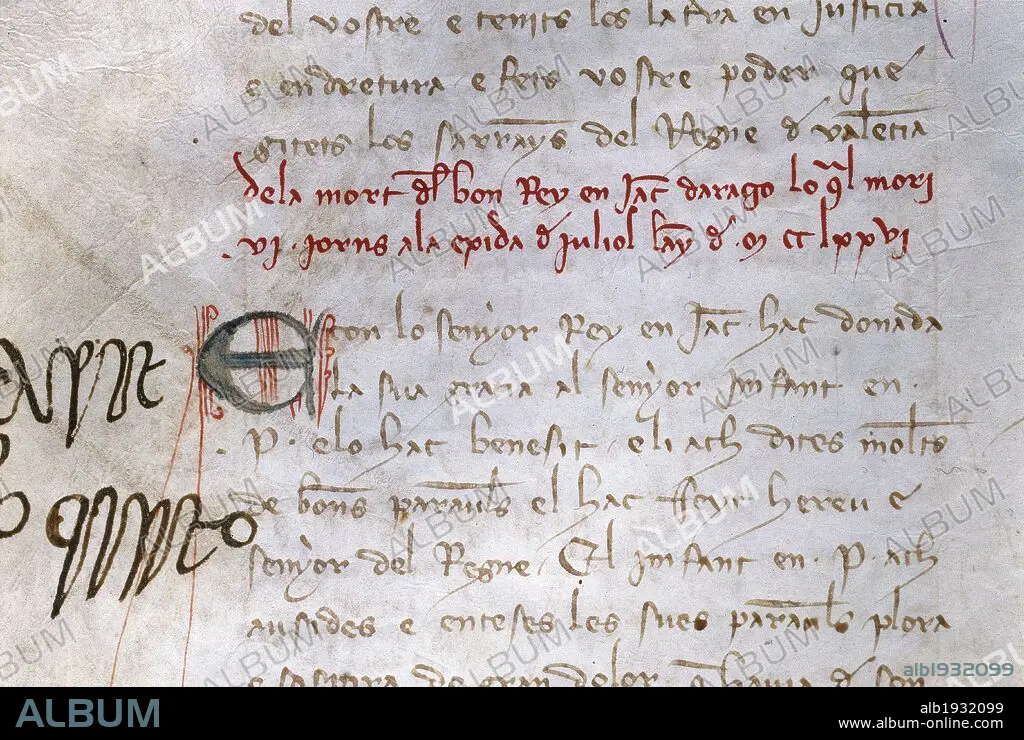 del vostre e tenits los la t̃ra en Justicia
e en dretura e feis vostre poder que
gitets los sarrayns del Regne d̓ valẽcia
dela mort dl̃ bon Rey en Jac̃ darago lo ql̃ mori
vi · jorns ala exida d̓ juliol lay d̓ · m cc lxxvi
E con lo senyor Rey en Jac̃ · hac donada
la sua gracia al senyor Infant en ·
P · e lo hac beneſit · e li ach dites molts
de bons paraul̃s el hac ffeyt hereu e
senyor del Regne · El Infant en · P · ach
ausides e enteses les sues paraul̃s plora
e sospira de gran dolor q̃ havia d̓ son
ALBUM
alb1932099
ALBUM
alb1932099
www.album-online.com